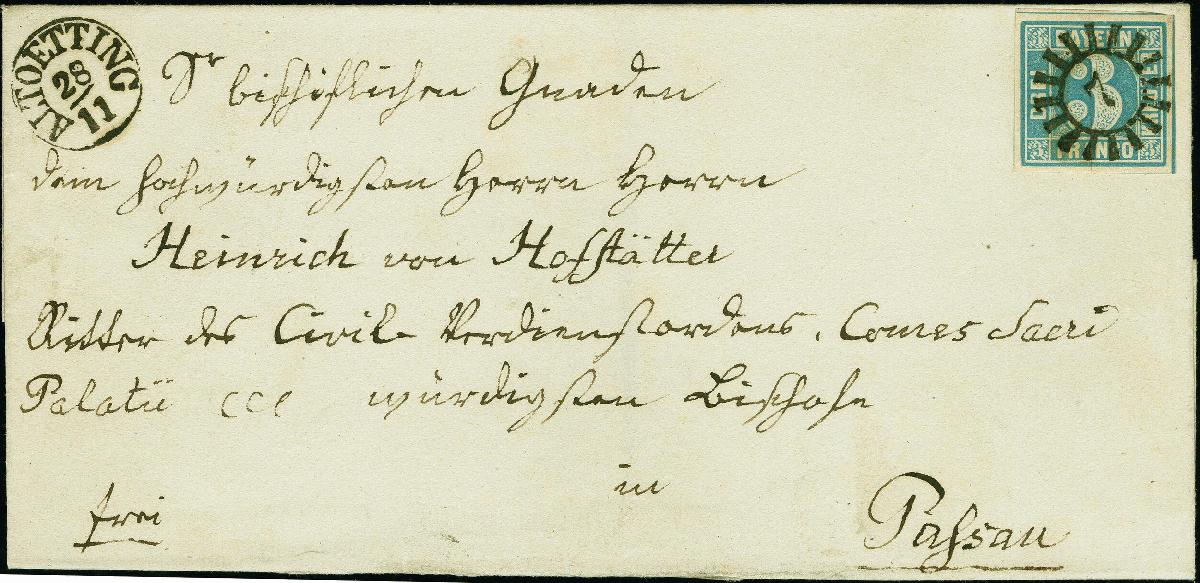 ALTOETTING
28
11
BAYERN
3
FRANCO
7
Sr bischöflichen Gnaden
dem hochwürdigsten Herrn Herrn
Heinrich von Hofstätter
Ritter des Civil-Verdienstordens, Comes Sacri
Palatii ccc würdigsten Bischofe
in
frei
Passau